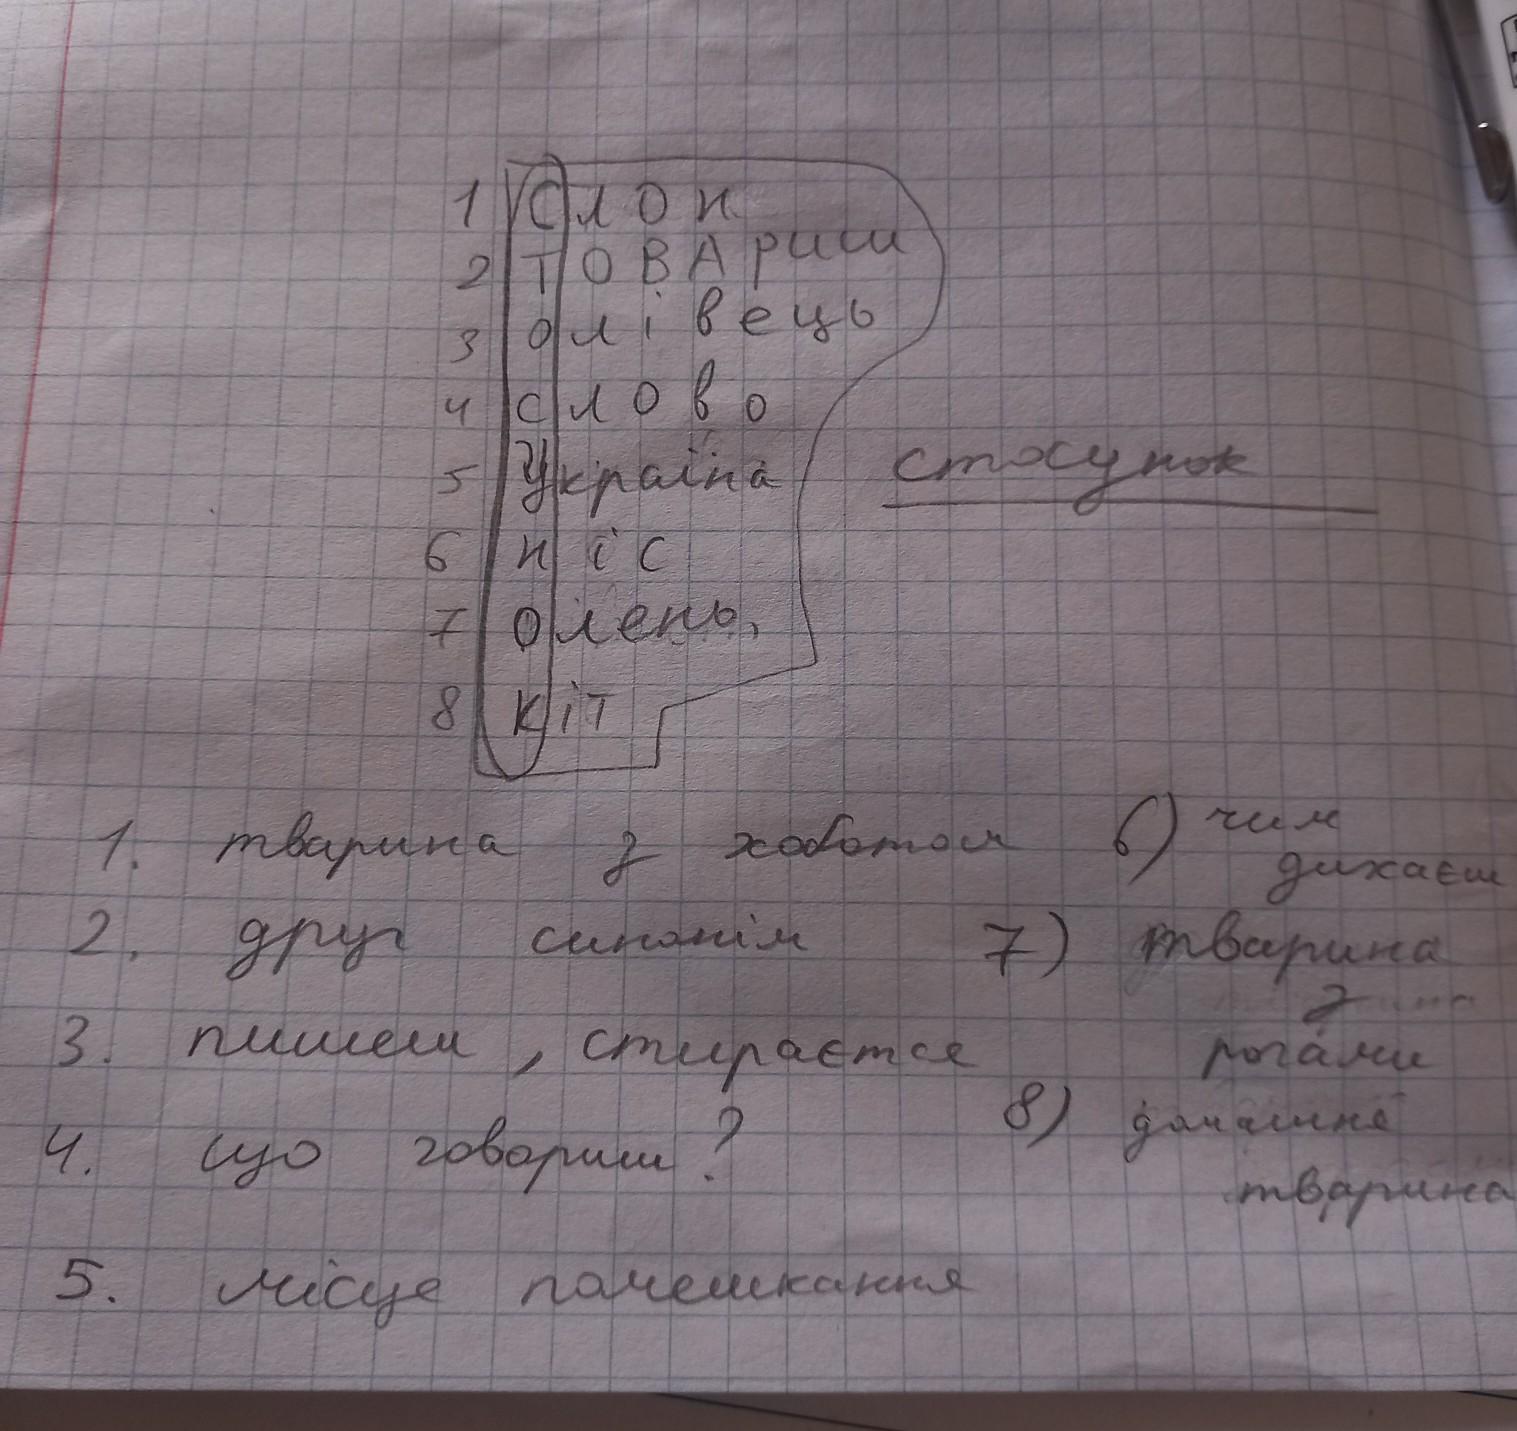 1 слон
2 ТОВАриш
3 олівець
4 слово
5 Україна
стосунок
6 ніс
7 олень,
8 кіт
1. тварина з хоботом
2. друг синонім
3. пишеш, стирається
4. що говориш?
5. місце помешкання
6) чим
дихаєш
7) тварина
з
рогами
8) домашня
тварина